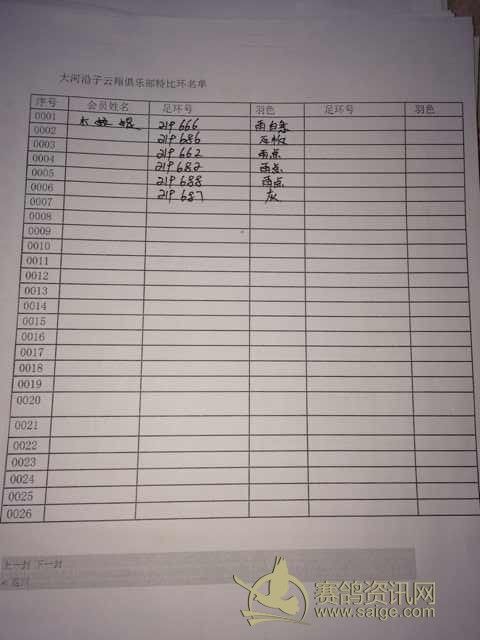 大河沿子云翔俱乐部特比环名单
序号 会员姓名 足环号 羽色 足环号 羽色
0001 219 666
0002 219 686
0003 219 662 雨点
0004 219 682 雨点
0005 219 688 雨点
0006 219 687 灰
0007
0008
0009
0010
0011
0012
0013
0014
0015
0016
0017
0018
0019
0020
0021
0022
0023
0024
0025
0026
上一封 下一封
« 返回
赛鸽资讯网
www.saige.com